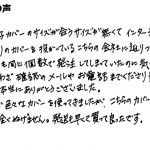 の声
カバーのサイズが合うサイズが無くてインター
りのカバーを預かっているこちらの会社に辿り
も同じ回数で発注してしまっていたのに気
わざ確認のメールやお電話までくださり
本当にありがとうございました。
色々なカバーを使ってきましたが、こちらのカバー
全くぬけません。発送も早くて買って良かったです。